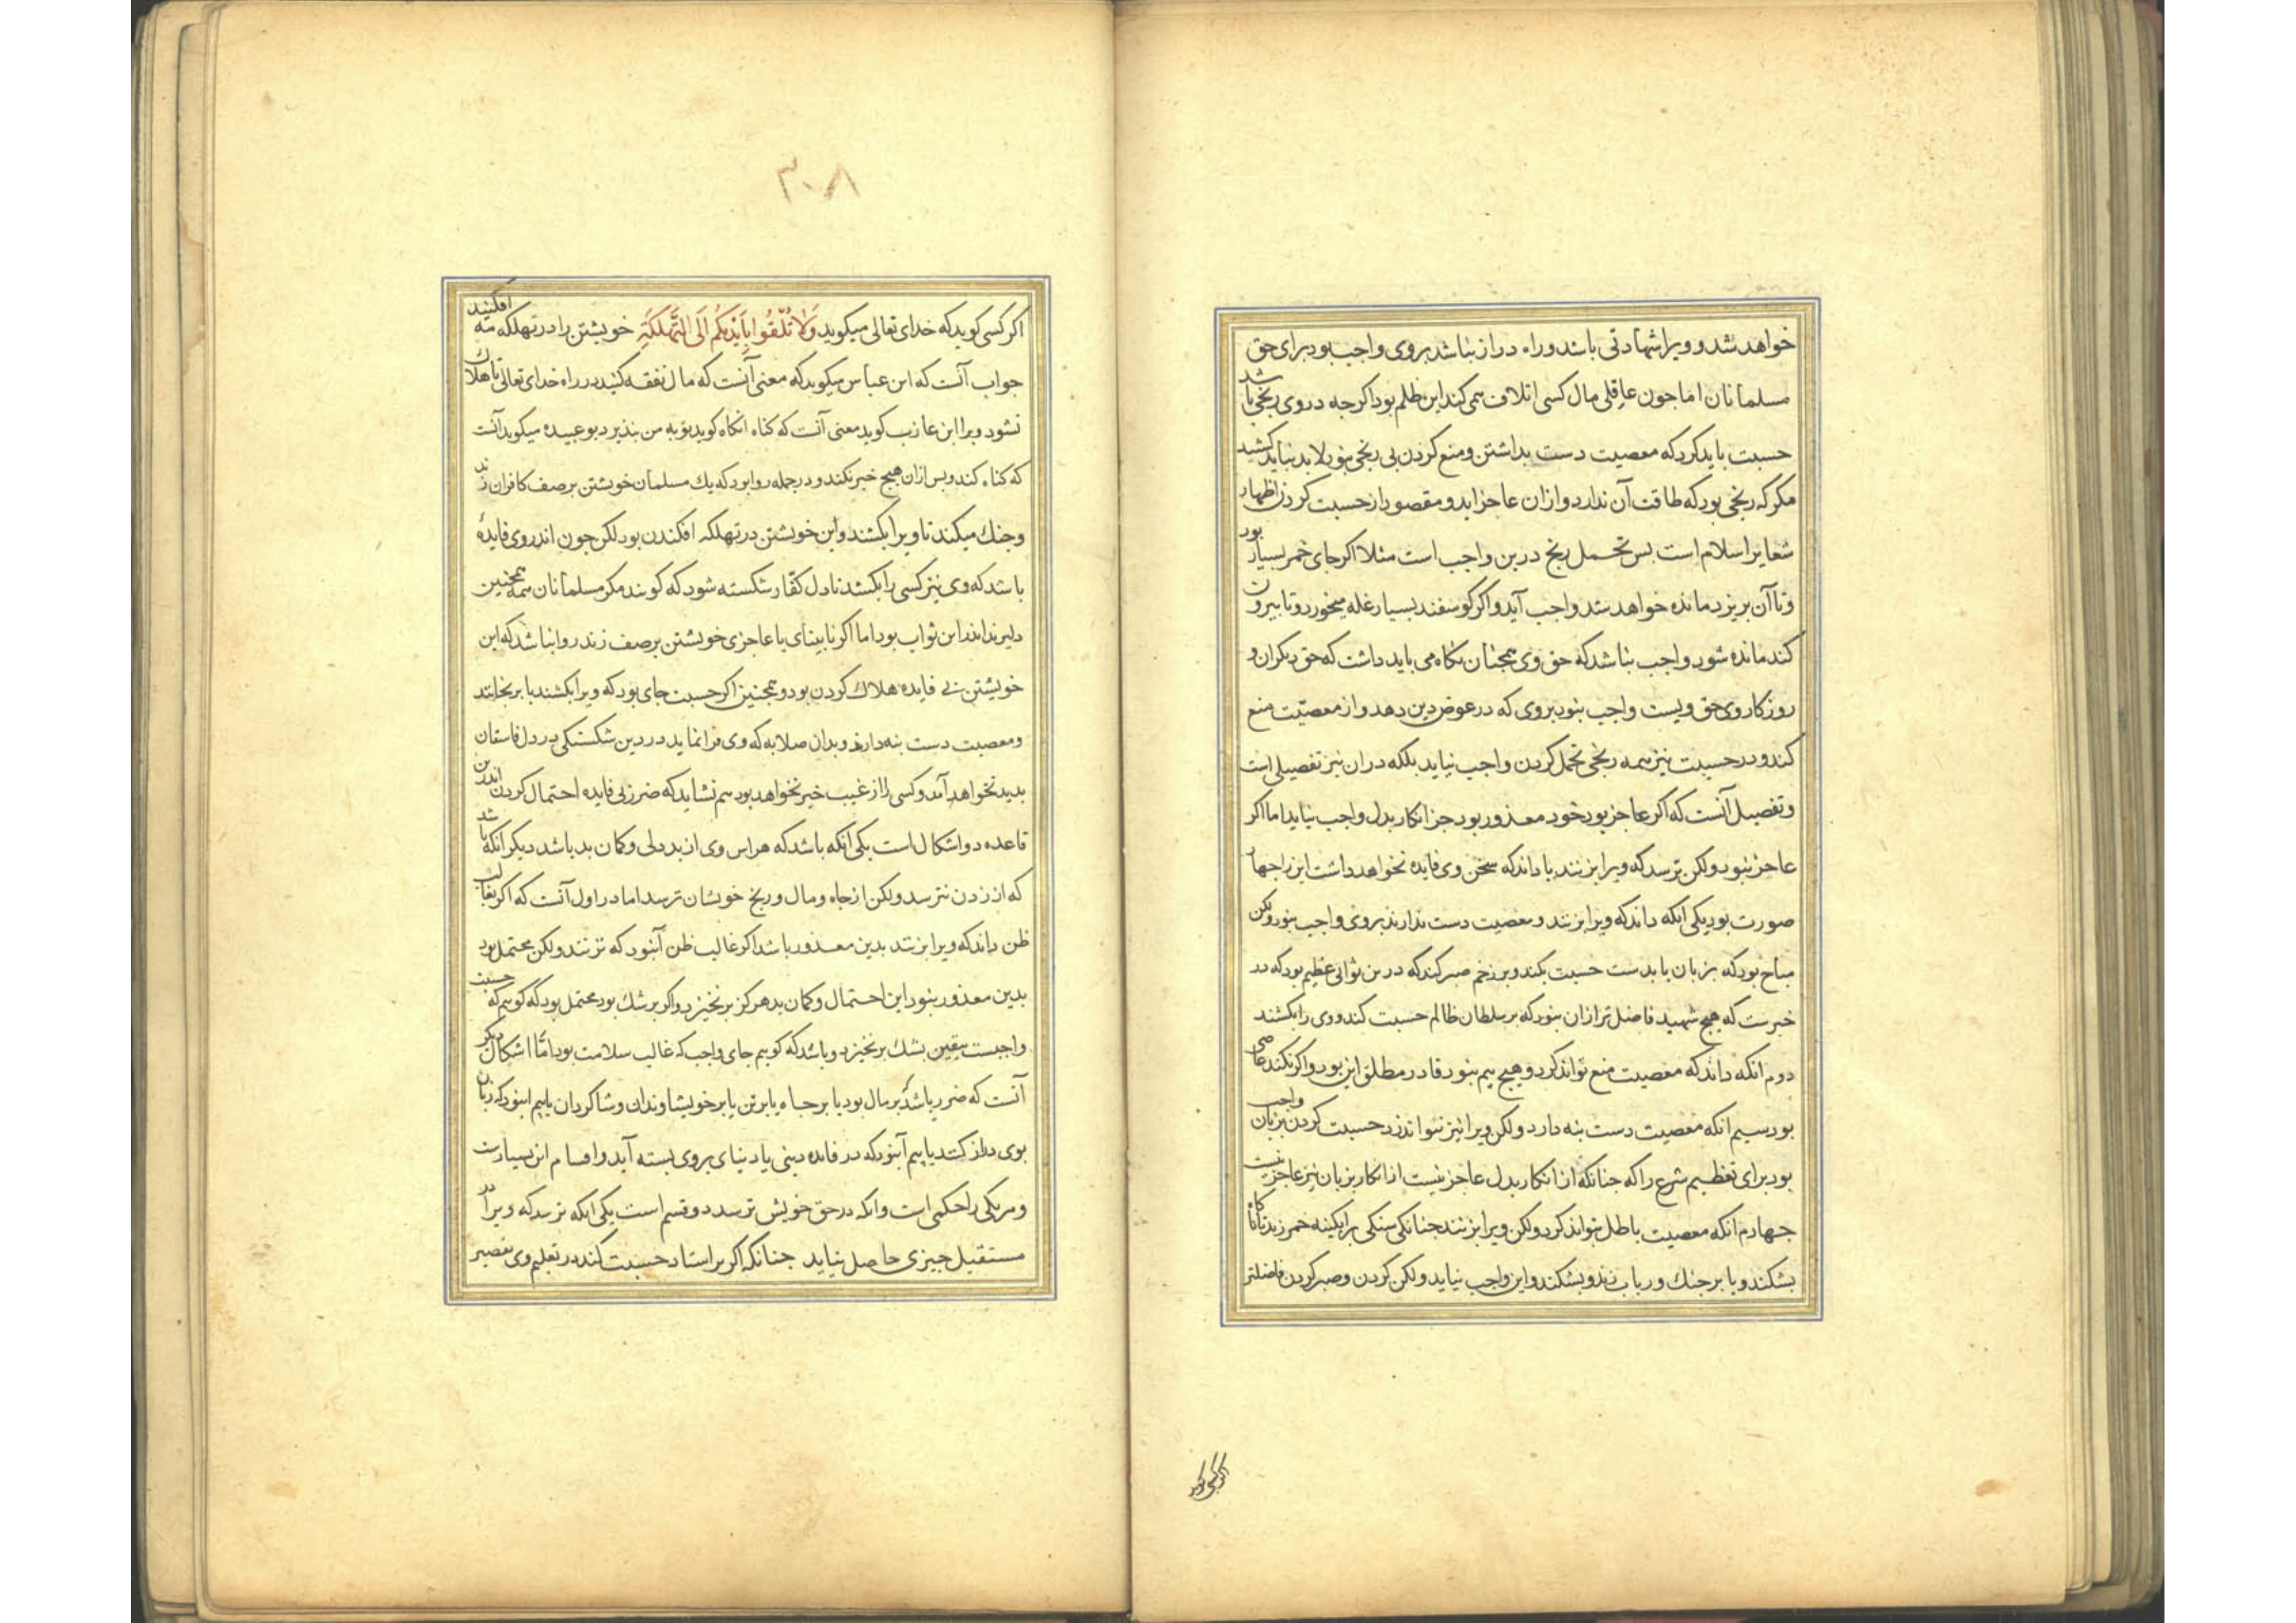 خواهد شد و ویرا شهادتی باشد و راه دراز نباشد بروی واجب بود برای حق
مسلمانان اما جون عاقلی مال کسی اتلاف می کند این ظلم بود اکرجه دروی رنجی باشد
حسبت باید کرد که معصیت دست بداشتن و منع کردن بی رنجی نبود لابد بباید کشید
مکر که رنجی بود که طاقت آن ندارد و ازان عاجز اید و مقصود از حسبت کردن اظهار
شعایر اسلام است بس تحمل رنج درین واجب است مثلا اکر جای خمر بسیار بود
و تا آن بریزد مانده خواهد شد واجب آید و اکر کوسفند بسیار غله میخورد و تا بیرون
کند مانده شود واجب نباشد که حق وی همجنان نکاه می باید داشت که حق دیکران و
روزکار وی حق ویست واجب نبود بروی که در عوض دین دهد و از معصیت منع
کند و در حسبت نیز همه رنجی تحمل کردن واجب نیاید بلکه دران نیز تفصیلی است
و تفصیل آنست که اکر عاجز بود خود معذور بود جز انکار بدل واجب نیاید اما اکر
عاجز نبود ولکن ترسد که ویرا بزنند یا داند که سخن وی فایده نخواهد داشت این را جهار
صورت بود یکی انکه داند که ویرا بزنند و معصیت دست ندارند بروی واجب نبود ولکن
مباح بود که بزبان یا بدست حسبت بکند و بر زخم صبر کند که درین ثوابی عظیم بود که در
خبرست که هیج شهید فاضل تر ازان نبود که بر سلطان ظالم حسبت کند و وی را بکشند
دوم انکه داند که معصیت منع تواند کرد و هیج بیم نبود قادر مطلق این بود و اکر نکند عاصی
بود سیم انکه معصیت دست بنه دارد ولکن ویرا نیز نتوانند زد حسبت کردن بزبان واجب
بود برای تعظیم شرع را که جنانکه از انکار بدل عاجز نیست از انکار بزبان نیز عاجز نیست
جهارم انکه معصیت باطل بتواند کرد ولکن ویرا بزنند جنانکی سنکی بر ابکینه خمر زند تا ناکاه
بشکند و یا بر جنک و رباب زند و بشکند و این واجب نیاید ولکن کردن و صبر کردن فاضلتر
اکر کسی کوید
۳۰۸
اکر کسی کوید که خدای تعالی میکوید وَلَا تُلْقُوا بِأَيْدِيكُمْ إِلَى التَّهْلُكَةِ خویشتن را در تهلکه مه افکنید
جواب آنست که ابن عباس میکوید که معنی آنست که مال نفقه کنید در راه خدای تعالی تا هلاک
نشود و برا ابن عازب کوید معنی آنست که کناه انکاه کوید توبه من نبذیرد بوعبیده میکوید آنست
که کناه کند و بس ازان هیج خیر نکند و در جمله روا بود که یك مسلمان خویشتن بر صف کافران زند
و جنك میکند تا ویرا بکشند و این خویشتن در تهلکه افکندن بود لکن جون اندروی فایدهٔ
باشد که وی نیز کسی را بکشد تا دل کفار شکسته شود که کویند مکر مسلمانان همه همجنین
دلیرند اندر این ثواب بود اما اکر نابینای یا عاجزی خویشتن بر صف زند روا نباشد که این
خویشتن بی فایده هلاك کردن بود و همجنین اکر حسبت جای بود که ویرا بکشند یا برنجانند
و معصیت دست بنه دارند و بدان صلابه که وی فرا نماید در دین شکستکی در دل فاسقان
بدید نخواهد آمد و کسی را از غیب خیر نخواهد بود هم نشاید که ضرر بی فایده احتمال کردن اندرین
قاعده دو اشکال است یکی انکه باشد که هراس وی از بد دلی و کمان بد باشد دیکر انکه باشد
که از زدن نترسد ولکن از جاه و مال و رنج خویشان ترسد اما در اول آنست که اکر بغالب
ظن داند که ویرا بزنند بدین معذور باشد اکر غالب ظن آنبود که نزنند ولکن محتمل بود
بدین معذور نبود این احتمال و کمان بد هرکز برنخیزد و اکر بر شك بود محتمل بود که کویم که حسبت
واجبست بیقین بشك برنخیزد و باشد که کویم جای واجب که غالب سلامت بود اما اشکال دیکر
آنست که ضرر باشد که بر مال بود یا بر جاه یا بر تن یا بر خویشاوندان و شاکردان یا بیم انبود که زبان
بوی دراز کنند یا بیم آنبود که در فایده دینی یا دنیای بروی بسته آید و اقسام این بسیارست
و هر یکی را حکمی است و انکه در حق خویش ترسد دو قسم است یکی انکه ترسد که ویرا در
مستقبل جیزی حاصل نیاید جنانکه اکر بر استاد حسبت کند در تعلیم وی تقصیر